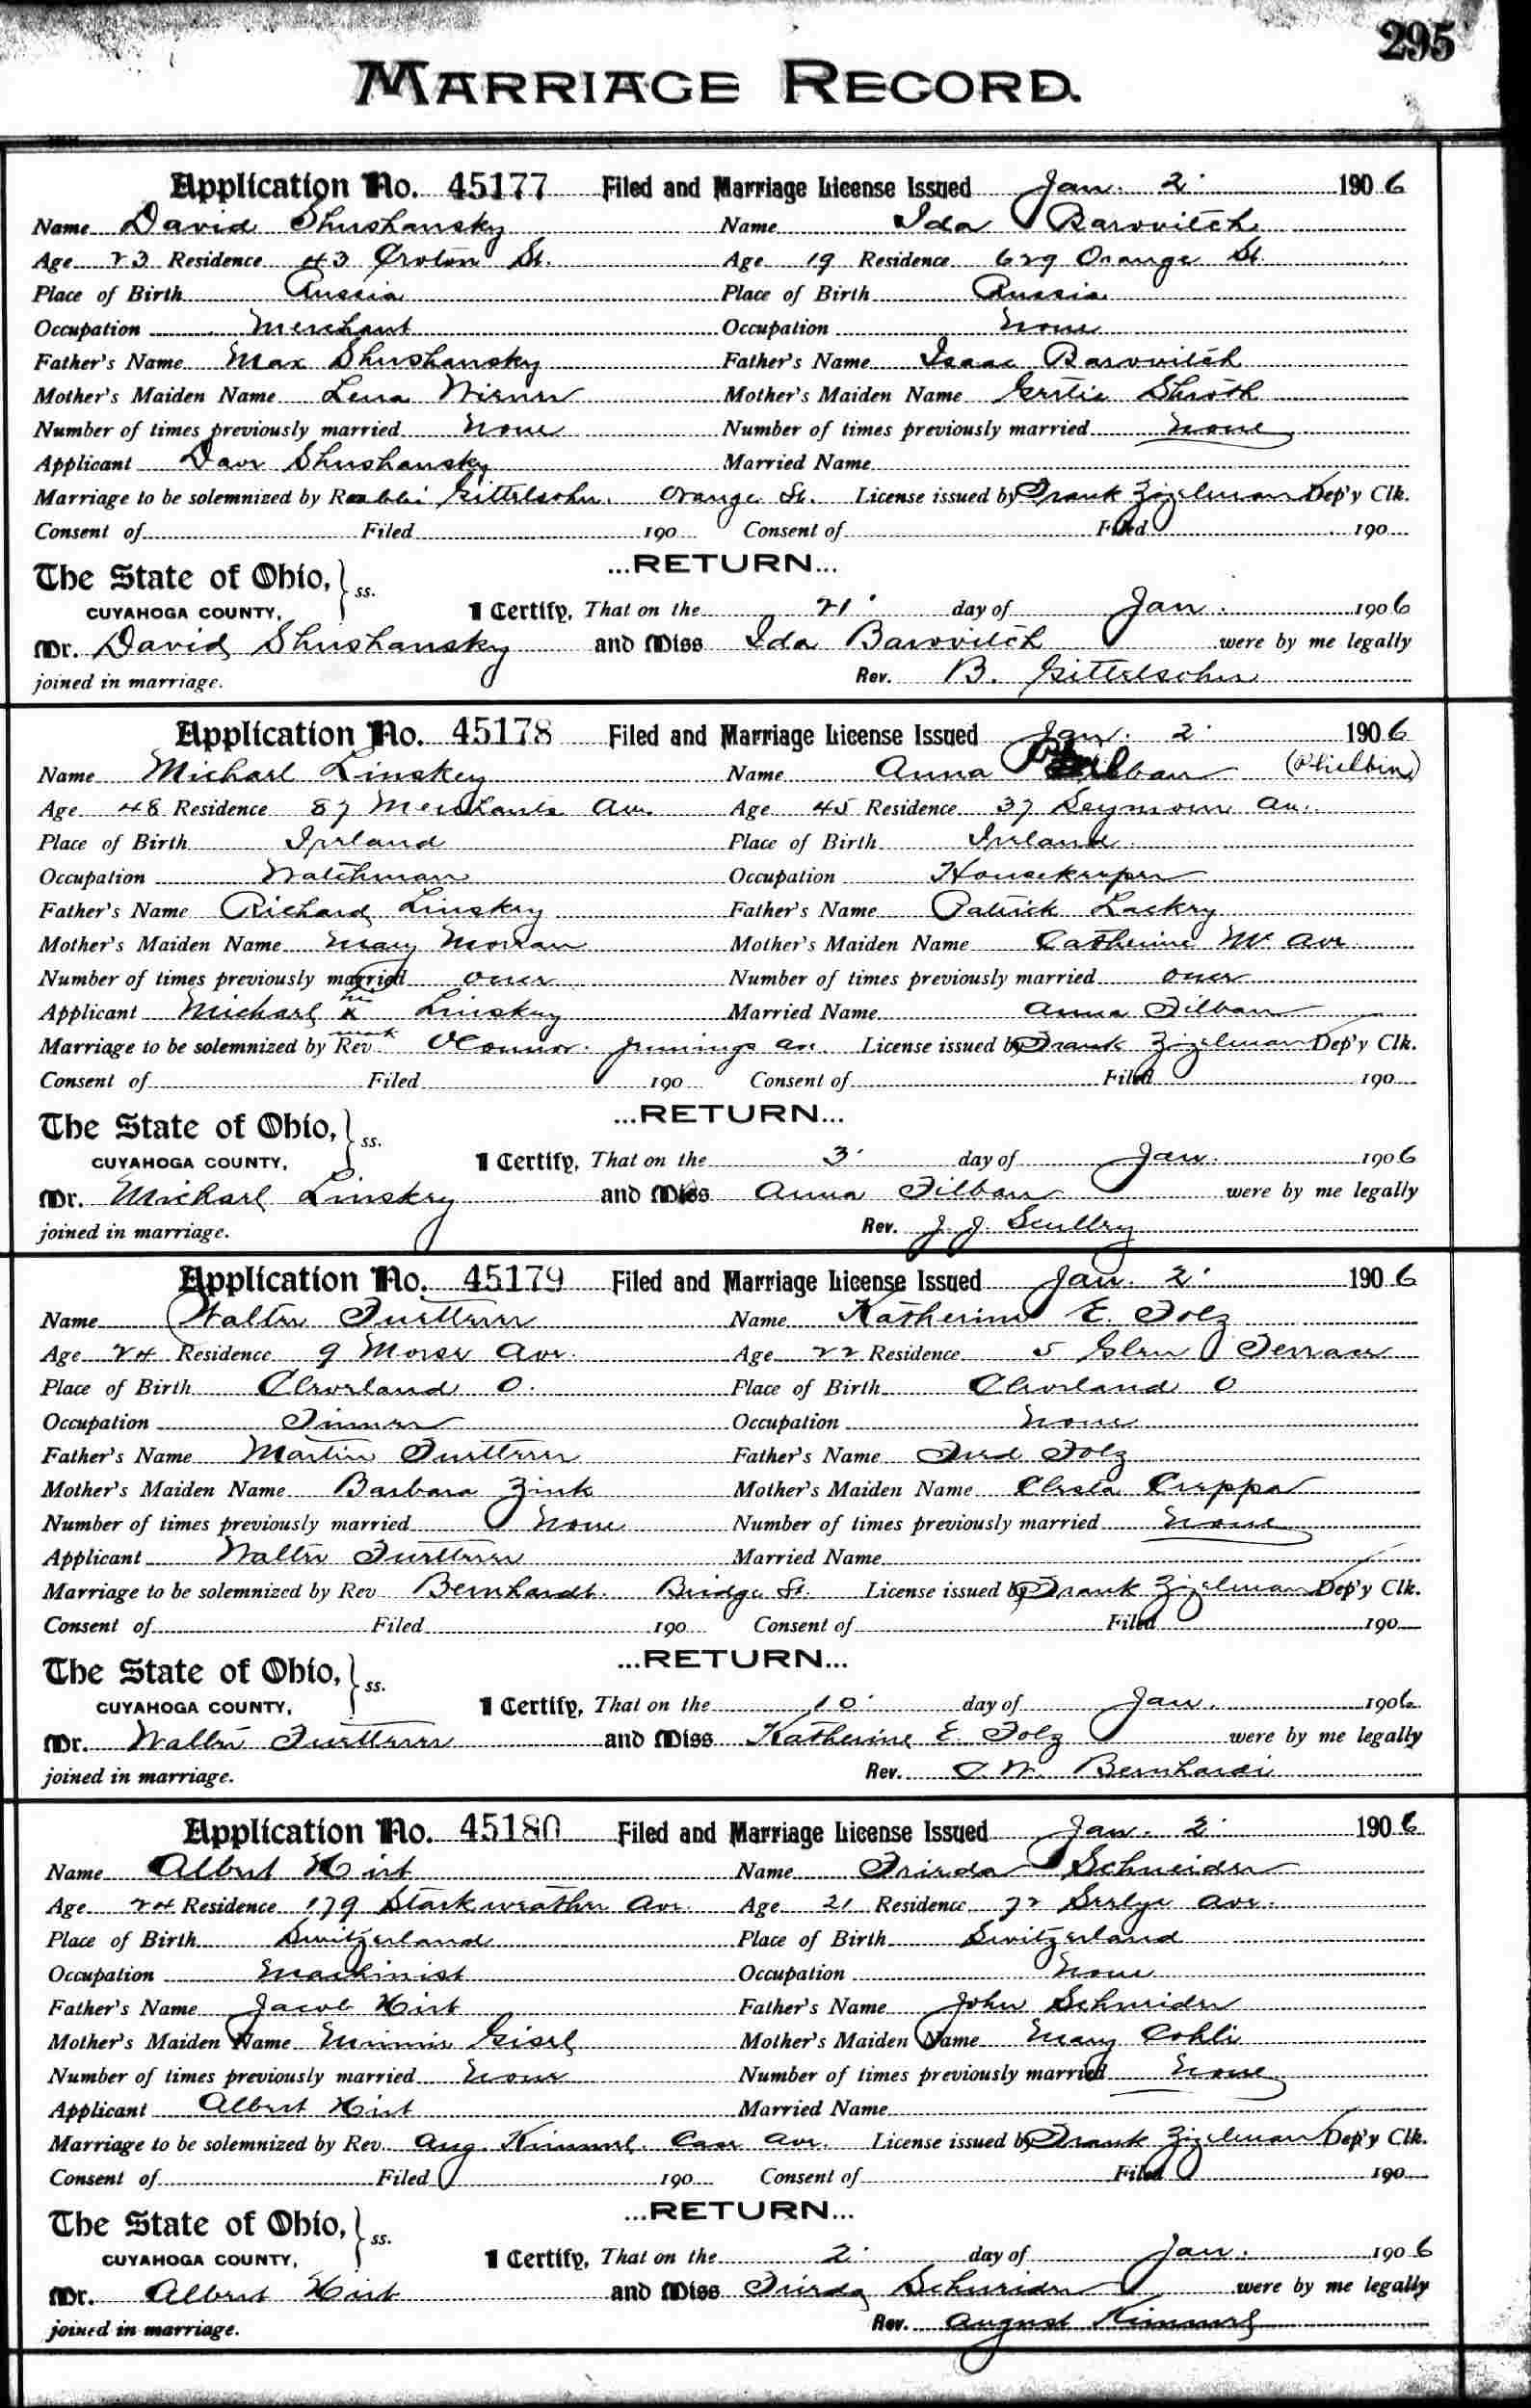 295
MARRIAGE RECORD.
Application No. 45177 Filed and Marriage License Issued Jan. 2 1906
Name David Shushansky Name Ida Barovitch
Age 23 Residence 43 Croton St. Age 19 Residence 629 Orange St.
Place of Birth Russia Place of Birth Russia
Occupation Merchant Occupation None
Father's Name Max Shushansky Father's Name Isaac Barovitch
Mother's Maiden Name Lena Mother's Maiden Name
Number of times previously married None Number of times previously married None
Applicant Dave Shushansky Married Name
Marriage to be solemnized by Rabbi Gittelsohn. Orange St. License issued by Frank Zizelman Dep'y Clk.
Consent of Filed 190 Consent of Filed 190
The State of Ohio, ss. ...RETURN...
CUYAHOGA COUNTY, I Certify, That on the 21 day of Jan. 1906
Mr. David Shushansky and Miss Ida Barovitch were by me legally
joined in marriage. Rev. B. Gittelsohn
Application No. 45178 Filed and Marriage License Issued Jan. 2 1906
Name Michael Linskey Name Anna Filban (Philbin)
Age 48 Residence 87 Merchants Ave. Age 45 Residence 37 Seymour Av.
Place of Birth Ireland Place of Birth Ireland
Occupation Watchman Occupation Housekeeper
Father's Name Richard Linskey Father's Name Patrick Lackey
Mother's Maiden Name Mary Moran Mother's Maiden Name Catherine
Number of times previously married once Number of times previously married once
Applicant Michael his x mark Linskey Married Name Anna Filban
Marriage to be solemnized by Rev O'Connor. Jennings Av. License issued by Frank Zizelman Dep'y Clk.
Consent of Filed 190 Consent of Filed 190
The State of Ohio, ss. ...RETURN...
CUYAHOGA COUNTY, I Certify, That on the 3 day of Jan. 1906
Mr. Michael Linskey and Miss Anna Filban were by me legally
joined in marriage. Rev. J. J. Sculley
Application No. 45179 Filed and Marriage License Issued Jan. 2 1906
Name Walter Fuetterer Name Katherine E. Folz
Age 24 Residence 9 Morse Ave. Age 22 Residence 5 Glen Terrace
Place of Birth Cleveland O. Place of Birth Cleveland O
Occupation Tinner Occupation None
Father's Name Martin Fuetterer Father's Name Fred Folz
Mother's Maiden Name Barbara Zink Mother's Maiden Name
Number of times previously married None Number of times previously married None
Applicant Walter Fuetterer Married Name
Marriage to be solemnized by Rev Bernhardt. Bridge St. License issued by Frank Zizelman Dep'y Clk.
Consent of Filed 190 Consent of Filed 190
The State of Ohio, ss. ...RETURN...
CUYAHOGA COUNTY, I Certify, That on the 10 day of Jan. 1906
Mr. Walter Fuetterer and Miss Katherine E. Folz were by me legally
joined in marriage. Rev. C. W. Bernhardi
Application No. 45180 Filed and Marriage License Issued Jan. 2 1906
Name Albert Hirt Name Frieda Schneider
Age 24 Residence 179 Starkweather Ave. Age 21 Residence 72 Seelye Ave.
Place of Birth Switzerland Place of Birth Switzerland
Occupation Machinist Occupation None
Father's Name Jacob Hirt Father's Name John Schneider
Mother's Maiden Name Minnie Gisel Mother's Maiden Name Mary
Number of times previously married None Number of times previously married None
Applicant Albert Hirt Married Name
Marriage to be solemnized by Rev. Aug. Kimmel. Carr Ave. License issued by Frank Zizelman Dep'y Clk.
Consent of Filed 190 Consent of Filed 190
The State of Ohio, ss. ...RETURN...
CUYAHOGA COUNTY, I Certify, That on the 2 day of Jan. 1906
Mr. Albert Hirt and Miss Frieda Schneider were by me legally
joined in marriage. Rev. August Kimmel